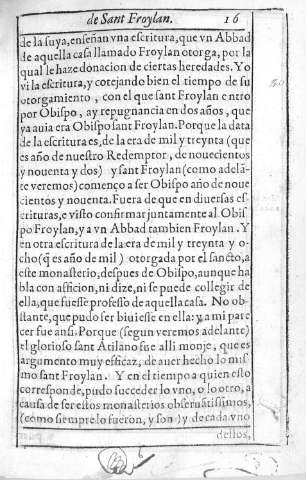 de Sant Froylan. 16
de la suya, enseñan vna escritura, que vn Abbad
de aquella casa llamado Froylan otorga, por la
qual le haze donacion de ciertas heredades. Yo
vi la escritura, y cotejando bien el tiempo de su
otorgamiento, con el que sant Froylan entro
por Obispo, ay repugnancia en dos años, que
ya auia era Obispo sant Froylan. Porque la data
de la escritura es, de la era de mil y treynta (que
es año de nuestro Redemptor, de nouecientos
y nouenta y dos) y sant Froylan (como adelã-
te veremos) començo a ser Obispo año de noue
cientos y nouenta. Fuera de que en diuersas es-
crituras, e visto confirmar juntamente al Obis
po Froylan, y a vn Abbad tambien Froylan. Y
en otra escritura de la era de mil y treynta y o-
cho (q̃ es año de mil) otorgada por el sancto, a
este monasterio, despues de Obispo, aunque ha
bla con aficion, ni dize, ni se puede collegir de
ella, que fuesse professo de aquella casa. No ob-
stante, que pudo ser biuiesse en ella: y a mi pare
cer fue ansi. Porque (segun veremos adelante)
el glorioso sant Atilano fue alli monje, que es
argumento muy efficaz, de auer hecho lo mis
mo sant Froylan. Y en el tiempo a quien esto
corresponde, pudo succeder lo vno, o lo otro, a
causa de ser estos monasterios obseruãtissimos,
(como siempre lo fueron, y son) y de cada vno
dellos,